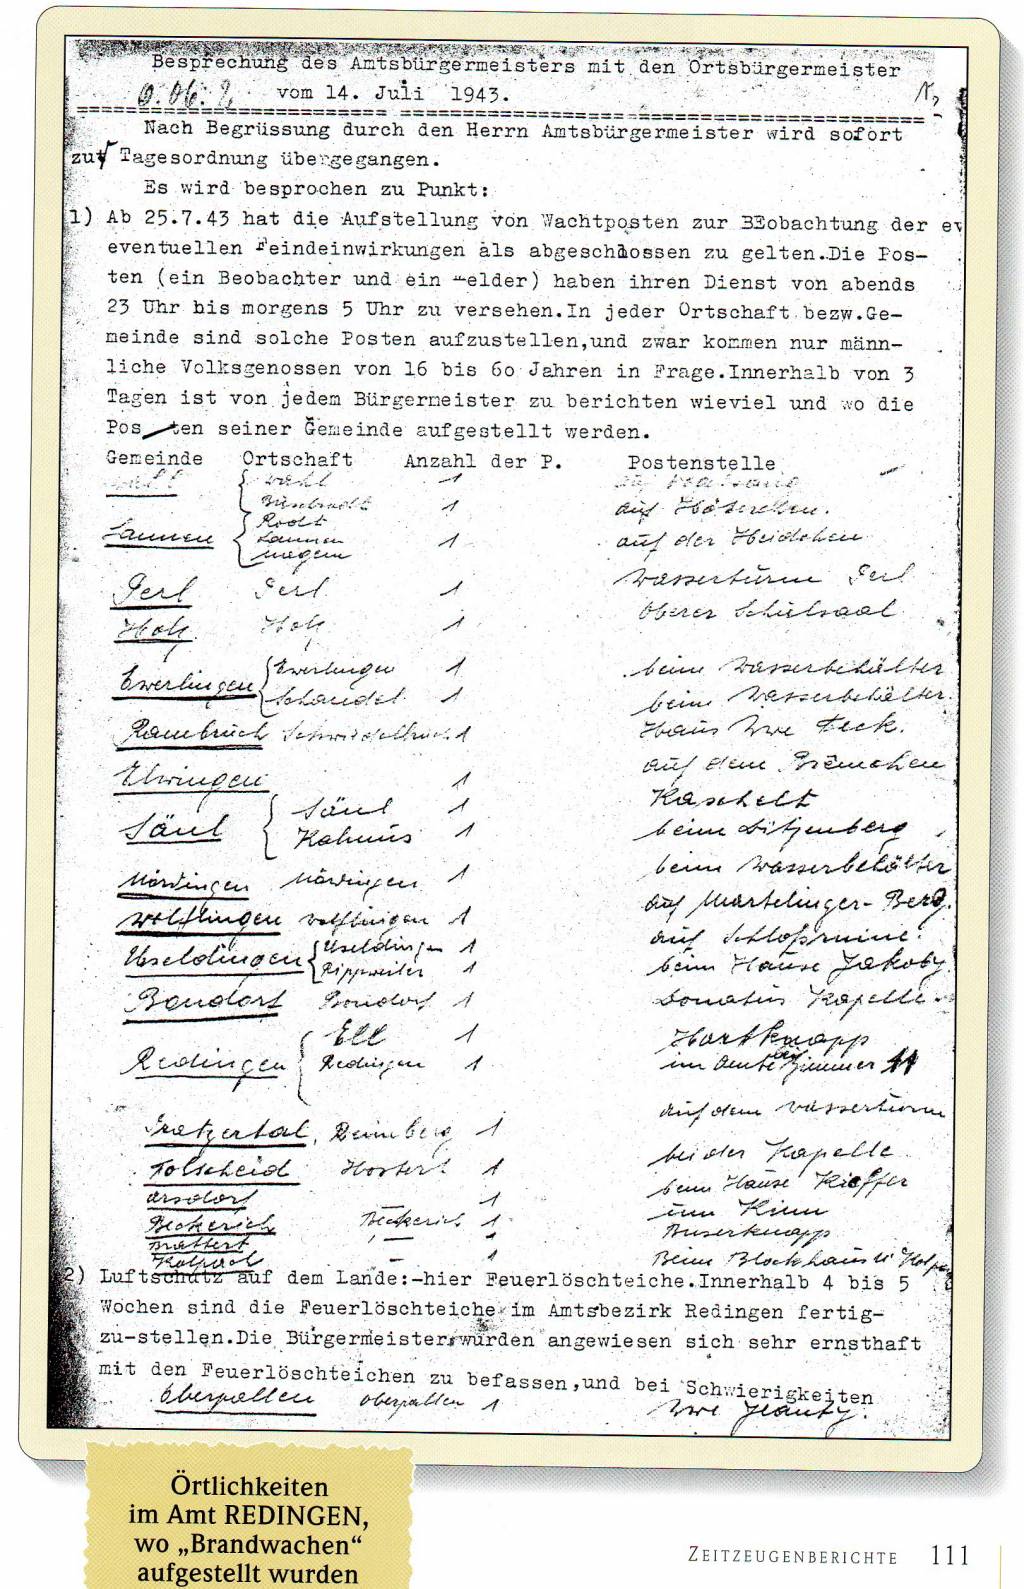 Besprechung des Amtsbürgermeisters mit den Ortsbürgermeister
vom 14. Juli 1943.
Nach Begrüssung durch den Herrn Amtsbürgermeister wird sofort
zur Tagesordnung übergegangen.
Es wird besprochen zu Punkt:
1) Ab 25.7.43 hat die Aufstellung von Wachtposten zur BEobachtung der ev
eventuellen Feindeinwirkungen als abgeschlossen zu gelten.Die Pos-
ten (ein Beobachter und ein Melder) haben ihren Dienst von abends
23 Uhr bis morgens 5 Uhr zu versehen.In jeder Ortschaft bezw.Ge-
meinde sind solche Posten aufzustellen,und zwar kommen nur männ-
liche Volksgenossen von 16 bis 60 Jahren in Frage.Innerhalb von 3
Tagen ist von jedem Bürgermeister zu berichten wieviel und wo die
Pos ten seiner Gemeinde aufgestellt werden.
Gemeinde Ortschaft Anzahl der P. Postenstelle
Wahl 1
1 auf
Rodt
Lannen Lannen 1 auf der Heidchen
Nagem
Perl Perl 1 Wasserturm Perl
Holz Holz 1 Oberer Schulsaal
Ewerlingen Ewerlingen 1 beim Wasserbehälter
Schandel 1 beim Wasserbehälter
Rambruch 1 Haus Wwe Feck.
Elwingen 1 auf dem Brémchen
Säul Säul 1 Kaschelt
Kahnüs 1 beim Bitzenberg
Mördingen Mördingen 1 beim Wasserbehälter
Wolflingen Wolflingen 1 auf Martelinger-Berg.
Useldingen Useldingen 1 auf Schloßruine.
Rippweiler 1 beim Hause Jakoby
Bondorf Bondorf 1 Donatus Kapelle
Ell 1 Hartknapp
Redingen Redingen 1 im Amte Zimmer 11
Pratzertal, Reimberg 1 auf dem Wasserturm
Folscheid Hostert 1 bei der Kapelle
Arsdorf 1 beim Hause Kieffer
Beckerich Beckerich 1 im Kinn
Brattert — 1 Buserknapp
Kolpach Beim Blockhaus
2) Luftschutz auf dem Lande:-hier Feuerlöschteiche.Innerhalb 4 bis 5
Wochen sind die Feuerlöschteiche im Amtsbezirk Redingen fertig-
zu-stellen.Die Bürgermeister wurden angewiesen sich sehr ernsthaft
mit den Feuerlöschteichen zu befassen,und bei Schwierigkeiten
Oberpallen Oberpallen 1 Wwe Jeanty.
Örtlichkeiten
im Amt REDINGEN,
wo „Brandwachen“
aufgestellt wurden
ZEITZEUGENBERICHTE 111